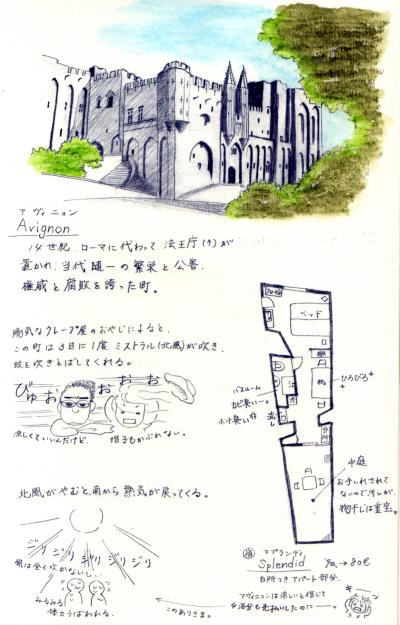 アヴィニョン
Avignon
14世紀、ローマに代わって 法王庁(↑)が
置かれ、当代随一の繁栄と公害、
権威と腐敗を誇った町。
陽気なクレープ屋のおやじによると、
この町は3日に1度 ミストラル(北風)が吹き、
蚊を吹きとばしてくれる。
びゅおおおお
涼しくていいんだけど、
帽子もかぶれない。
北風がやむと、南から 熱気が戻ってくる。
ジリジリジリジリジリ
風は全く吹かないし、
みるみる
体力うばわれる。
このありさま。
ベッド
机
ひろびろ
バスルーム
カビ臭いー。
流し
台所
中庭
お手いれされて
ないので汚いが、
物干しは重宝。
スプランディ
Splendid
→80€
台所つきアパート部分。
アヴィニョンは涼しいと信じて
4泊分も先払いしたのに